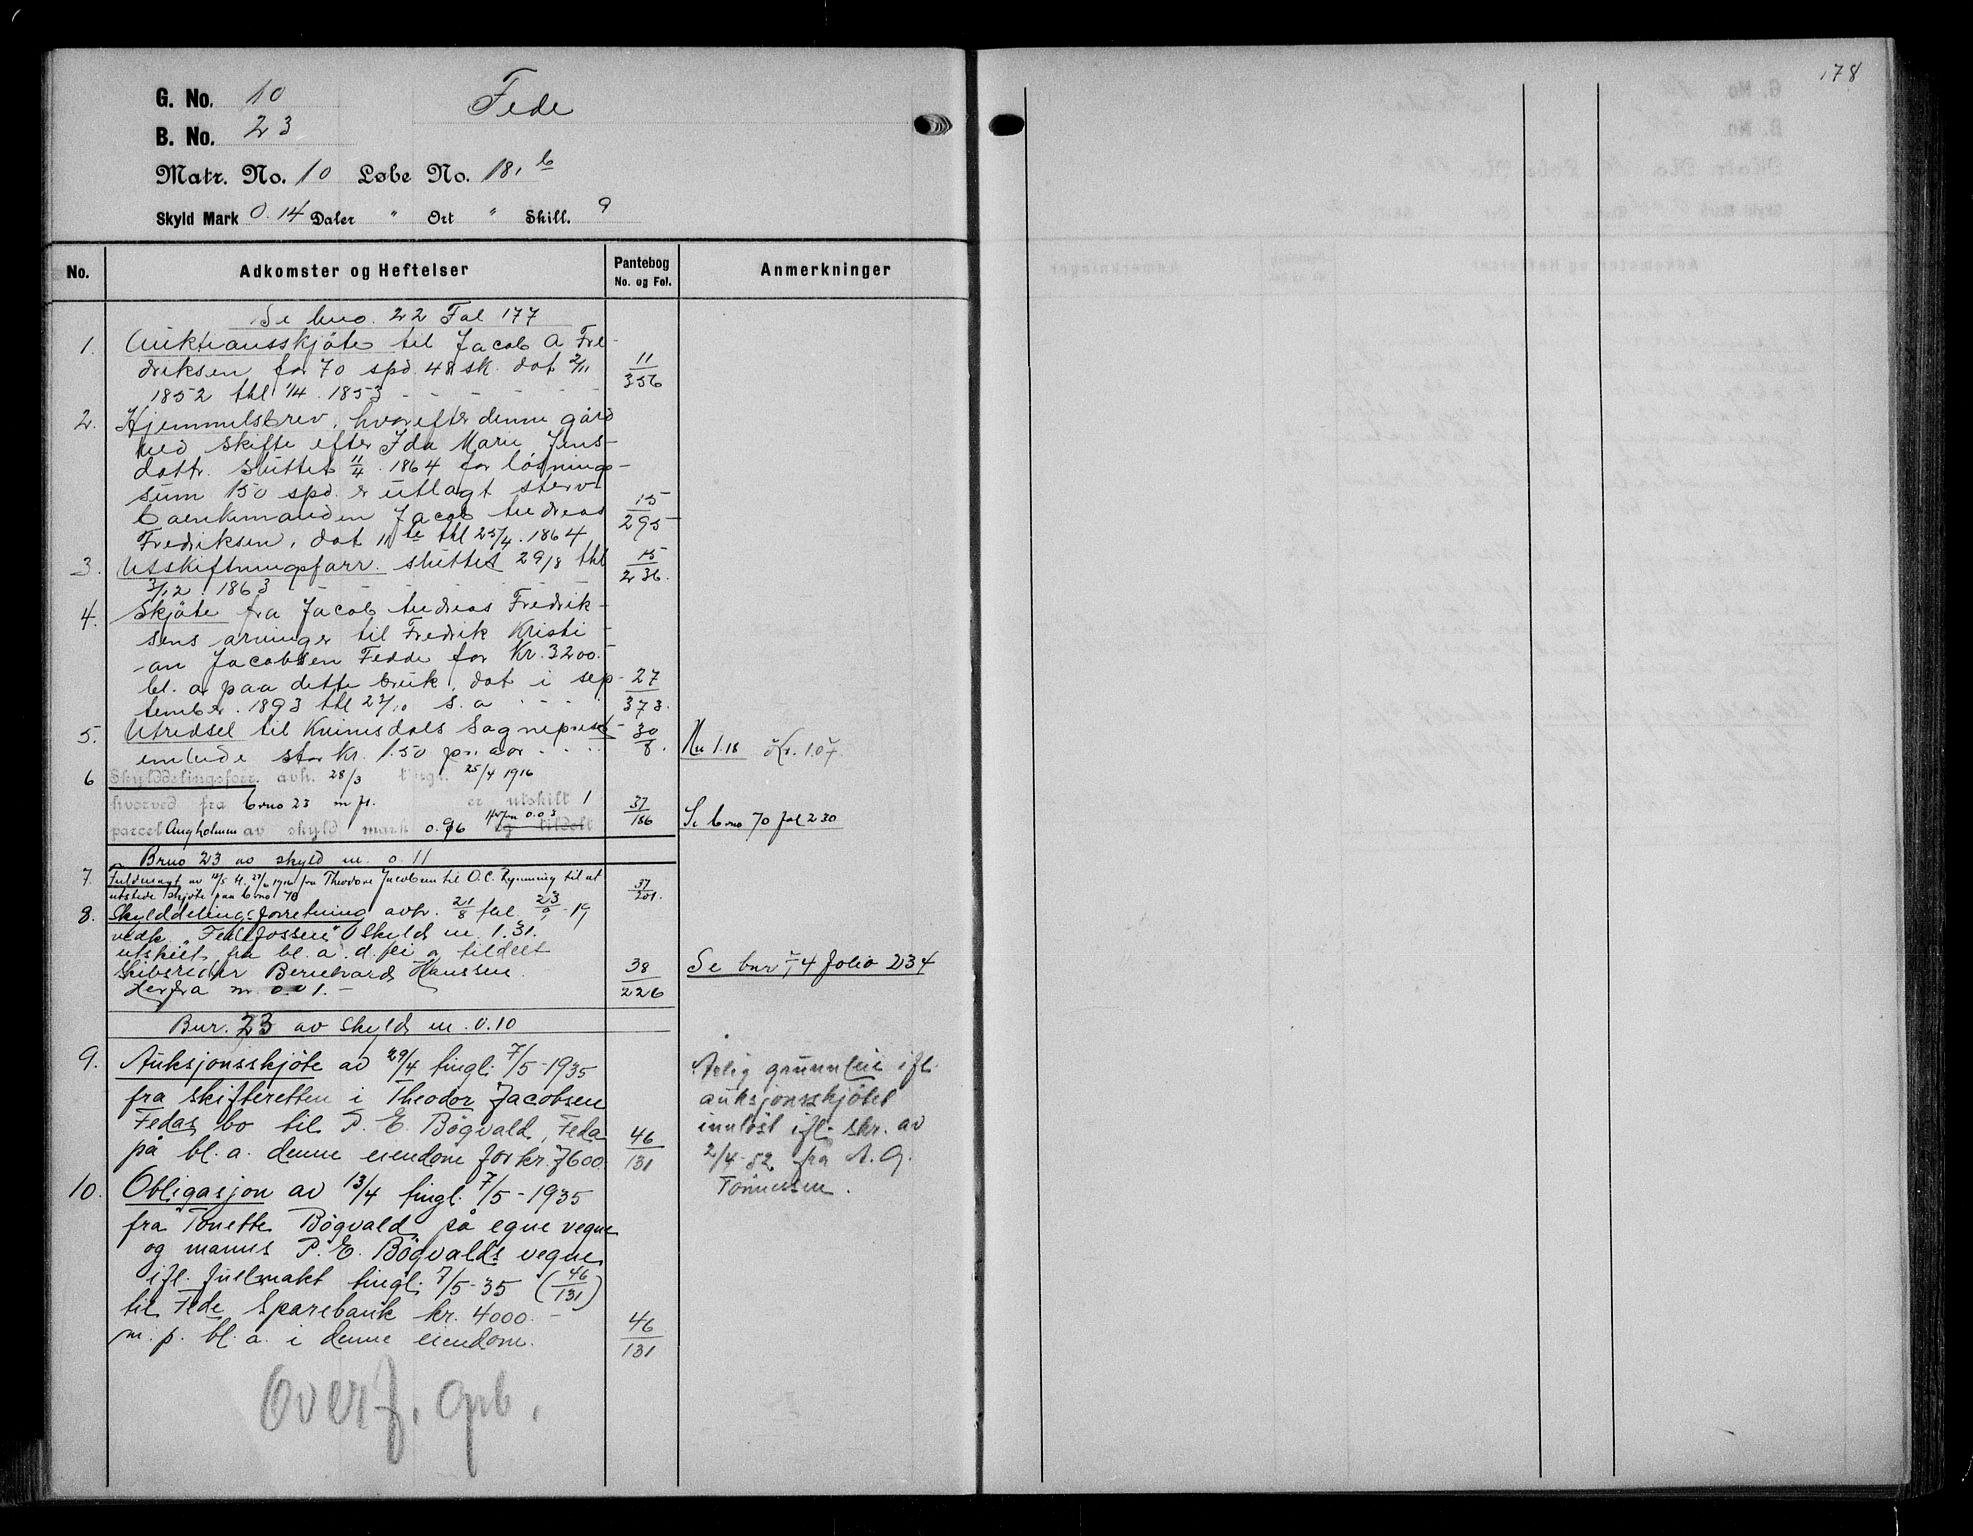 178
G. No. 10
Fede
B. No. 23
Matr. No. 10 Løbe No. 18, b
Skyld Mark 0.14 Daler " Ort " Skill. 9
No. Adkomster og Heftelser Pantebog No. og Fol. Anmerkninger
Se bno. 22 Fol 177
1. Auktionsskjöte til Jacob A Fre-
driksen for 70 spd. 48 sk. dat 2/11 11/356
1852 thl 1/4. 1853 - - - -
2. Hjemmelsbrev, hvorefter denne gård
ved skifte efter Ida Marie Jens-
dattr. sluttet 11/4. 1864 for løsnings-
sum 150 spd. er utlagt sterv-
boenkemanden Jacob Andreas 15/295
Fredriksen, dat 11te thl 25/4. 1864
3. Utskiftningsforr. sluttet 29/8 thl 15/236.
3/12 1863 - - -
4. Skjöte fra Jacob Andreas Fredrik-
sens arvinger til Fredrik Kristi-
an Jacobsen Fedde for Kr. 3200.-
bl. a. paa dette bruk, dat i sep- 27/373.
tember. 1893 thl 23/10 s. a - - -
5. Utredsel til Kvinesdals Sogneprest- 30/8. Nu 1.18 Kr. 1.07.
embede stor kr. 1.50 pr. aar - - -
6 Skylddelingsforr. avh. 28/3 tingl. 25/4 1916
hvorved fra bno 23 m fl. er utskilt 1 37/186
parcel Angholmen av skyld mark 0.96 Herfra 0.03 og tildelt Se bno 70 fol 230
Brno 23 av skyld m. 0.11
7. Fuldmagt av 12/5 tl. 27/6 1916 fra Theodore Jacobsen til O.C. Rynning til at 37/201.
utstede skjøte paa bno 70
8. Skylddelingsforretning avh. 21/8 thl. 23/9-19
vedk. "Fedefossen" Skyld m. 1.31.
utskilt fra bl. a. d. ei. o tildelt
Skibsreder Bernhard Hanssen. 38/226 Se bnr 74 folio 234
Herfra m. 0.01. -
Bnr. 23 av Skyld m. 0.10
9. Auksjonsskjöte av 29/4 tingl. 7/5-1935
fra skifteretten i Theodor Jacobsen
Fedas bo til P. E. Bögvald, Feda 46/131
på bl. a. denne eiendom for kr. 7600.
Årlig grunnleie ifl.
auksjonsskjötet
innløst ifl. skr. av
2/4-52 fra A. G.
Tönnesen.
10. Obligasjon av 13/4 tingl. 7/5-1935
fra Tonette Bögvald på egne vegne
og manns P. E. Bögvalds vegne
ifl. fullmakt tingl. 7/5-35 (46/131)
til Fede Sparebank kr. 4000.- 46/131
m. p. bl. a. i denne eiendom.
Overf. grb.